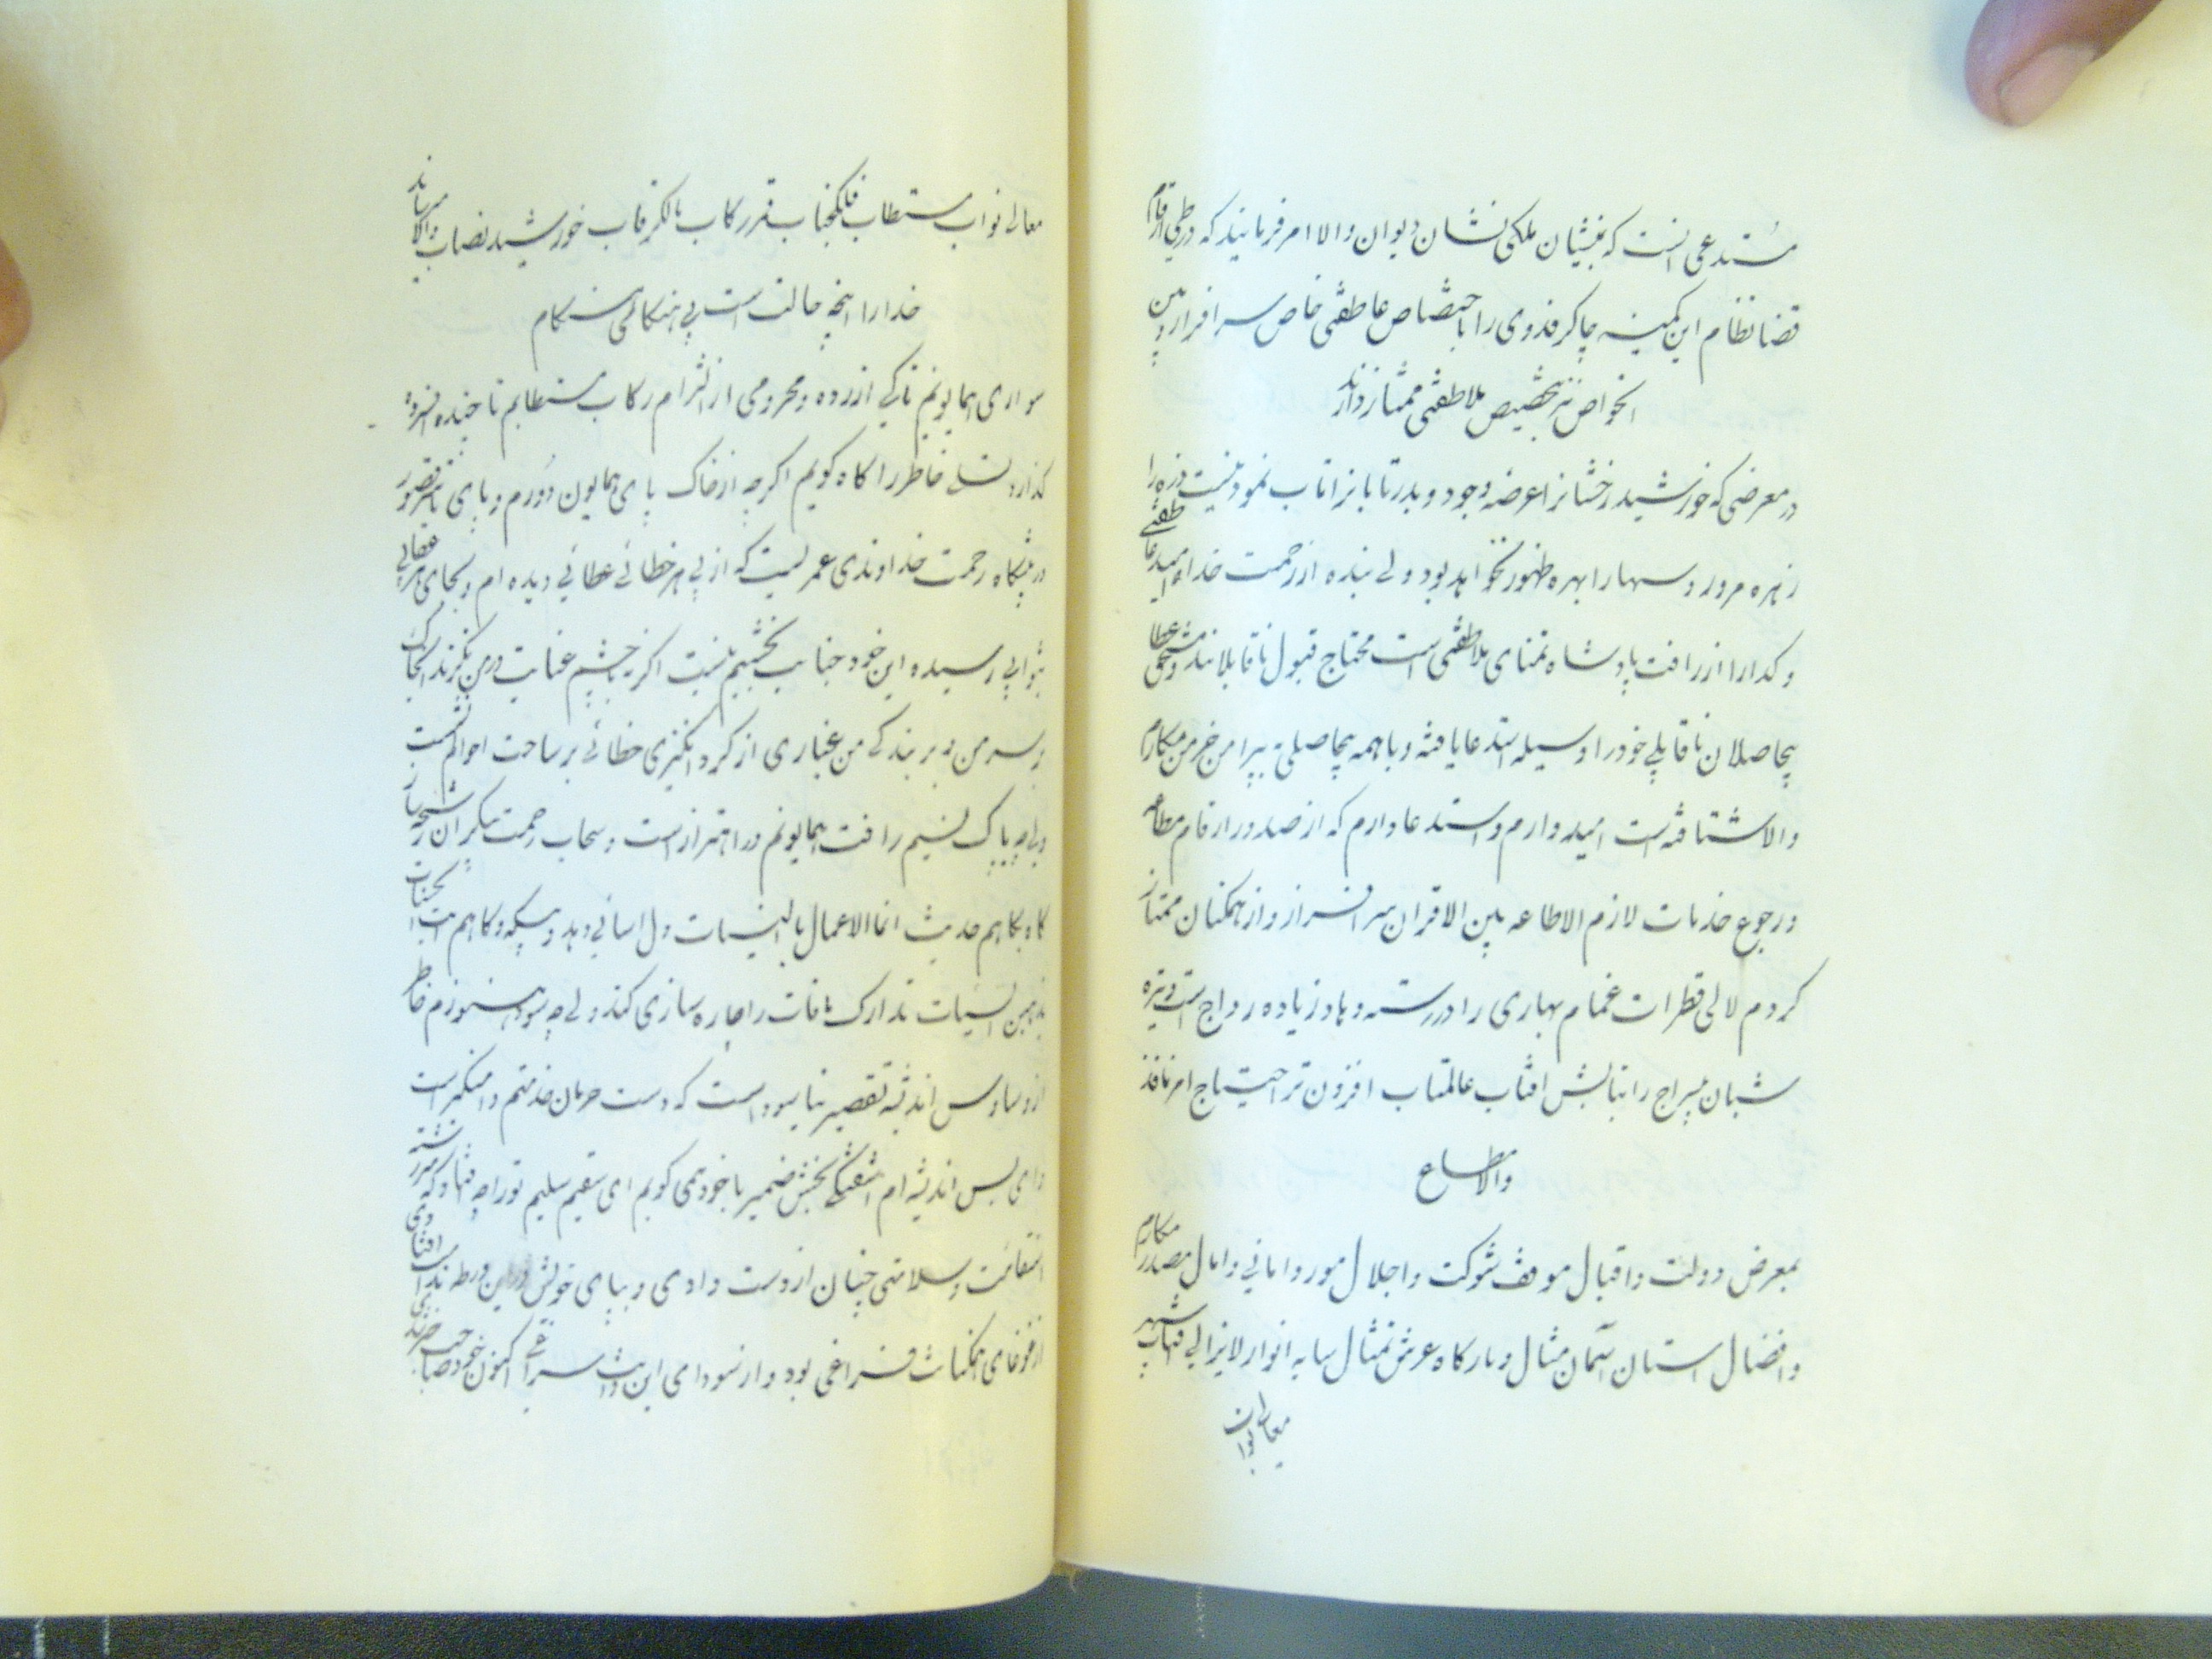 مستدعی است که بمنشیان ملکی نشان دیوان والا امر فرمایند که در طی ارقام
قضا نظام این کمینه چاکر فدوی را باختصاص عاطفتی خاص سرافراز و من بین
الخواص بتخصیص ملاطفتی ممتاز دارند
در معرضی که خورشید رخشانرا عرضه وجود و بدر تابانرا تاب نمود نیست ذره را
زهره مرور و سها را بهره ظهور نخواهد بود ولی بنده از رحمت خداوند امید عاطفتی
و کدا را از رافت پادشاه تمنای ملاطفتی است محتاج قبول ناقابلانند و مستحق عطا
بیحاصلان ناقابلی خود را وسیله استدعا یافته و با همه بیحاصلی پیرامن خرمن مکارم
والا شتافته است امیدوارم و استدعا دارم که از صدور ارقام مطاعه
و رجوع خدمات لازم الاطاعه بین الاقران سرافراز و از همکنان ممتاز
کردم لالی قطرات غمام بهاری را در رسته و ماد زیاده رواج است و تیره
شبان بیسراج را بتابش افتاب عالمتاب افزون تر احتیاج امر نافذ
والا مطاع
بمعرض دولت و اقبال موقف شوکت و اجلال مورد امانی و امال مصدر مکارم
و افضال استان آسمان مثال و بارکاه عرش تمثال سایه انوار لایزالی
معالی نواب
معالی نواب مستطاب فلکجناب قمر رکاب مالک رقاب خورشید نصاب والا میرساند
خدا را اینچه حالتست بی هنکام هنکام
سواری همایونم تا کی ازرده و محرومی از التزام رکاب مستطابم تا چند افسرده
کذارد تسلی خاطر را کاه کویم اکرچه از خاک پای همایون دورم و بپای تا سر قصور
در پیشکاه رحمت خداوندی عمریست که از پی هر خطائی عطائی دیده ام و بجای هر عقابی
ثوابی رسیده این خود جنایت نخستینم نیست اکر بچشم عنایت در من نکرند
و سر من و بر بندکی من غباری از کرد انکیزی خطائی بر ساحت احوالم نشست
ولی چه باک نسیم رافت همایونم در اهتزاز است و سحاب رحمت بیکران رشحه بار
کاه بکاهم حدیث انما الاعمال بالنیات دل اسائی دهد و کاهم ایت ان الحسنات
یذهبن السیئات تدارک مافات را چاره سازی کند ولی چه سود هنوزم خاطر
از وساوس اندیشه تقصیر نیاسوده است که دست حرمان خدمتم دامنکیر است
وای بس اندیشه ام اشفتکی بخش ضمیر با خود همی کویم ای سقیم سلیم تو را چه فتاد که سررشته
استقامت و سلامتی چنان از دست دادی و بپای خویش در این ورطه ندامت افتادی
از غوغای همکنانت فراغی بود و از سودای اینوانت سراغی اکنون خود